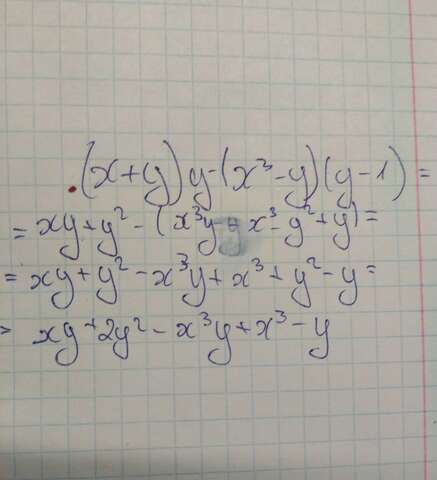 (x+y)y-(x³-y)(y-1)=
=xy+y²-(x³y-x³-y²+y)=
=xy+y²-x³y+x³+y²-y=
=xy+2y²-x³y+x³-y